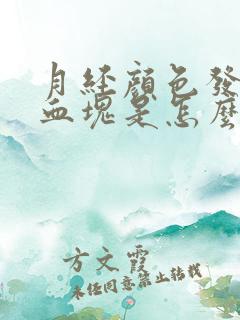 月经颜色發
血塊是怎麼
方文霞
未经同意禁止转载